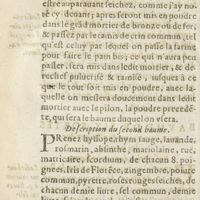 estre auparavant seichez, comme j'ay no-
té cy devant: apres seront mis en poudre
dans le grãd mortier de bronze ou de fer,
& passez par le tamis de crin commun, tel
qu'est celuy par lequel on passe la farine
pour faire le pain bis; ce qui n'aura peu
passer, sera mis dans ledit mortier, & de-
rechef pulverisé & tamisé, jusques à ce
que le tout soit mis en poudre, avec la-
quelle on meslera doucement dans ledit
mortier avec le pilon, la poudre precedẽ-
te, qui sera le baume duquel on usera.
Description du second baume.
PRenez hyssope, thym sauge, lavande,
rosmarin, absinthe, mariolaine, ruë,
matricaire, scordium, de chacun 8. poi-
gnées, Iris de Florẽce, zingembre, poivre
commun, pyretre, roses rouges seiches, de
chacun demie livre, sel commun, demie